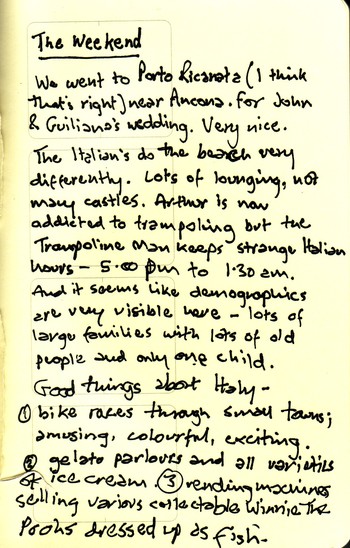 The Weekend
We went to Porto Ricanata (I think
that's right) near Ancona. for John
& Guiliana's wedding. Very nice.
The Italian's do the beach very
differently. Lots of lounging, not
many castles. Arthur is now
addicted to trampoling but the
Trampoline Man keeps strange Italian
hours - 5.00 pm to 1.30 am.
And it seems like demographics
are very visible here - lots of
large families with lots of old
people and only one child.
Good things about Italy -
① bike races through small towns;
amusing, colourful, exciting.
② gelato parlours and all varieties
of ice cream. ③ vending machines
selling various collectable Winnie The
Poohs dressed up as fish.